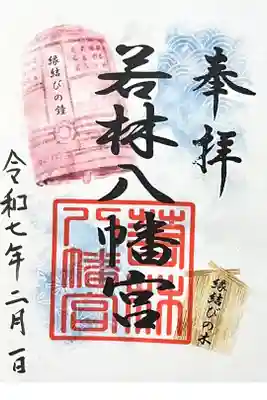 奉拝
若林八幡宮
若林
八幡宮
縁結びの鐘
縁結びの木
令和七年二月一日